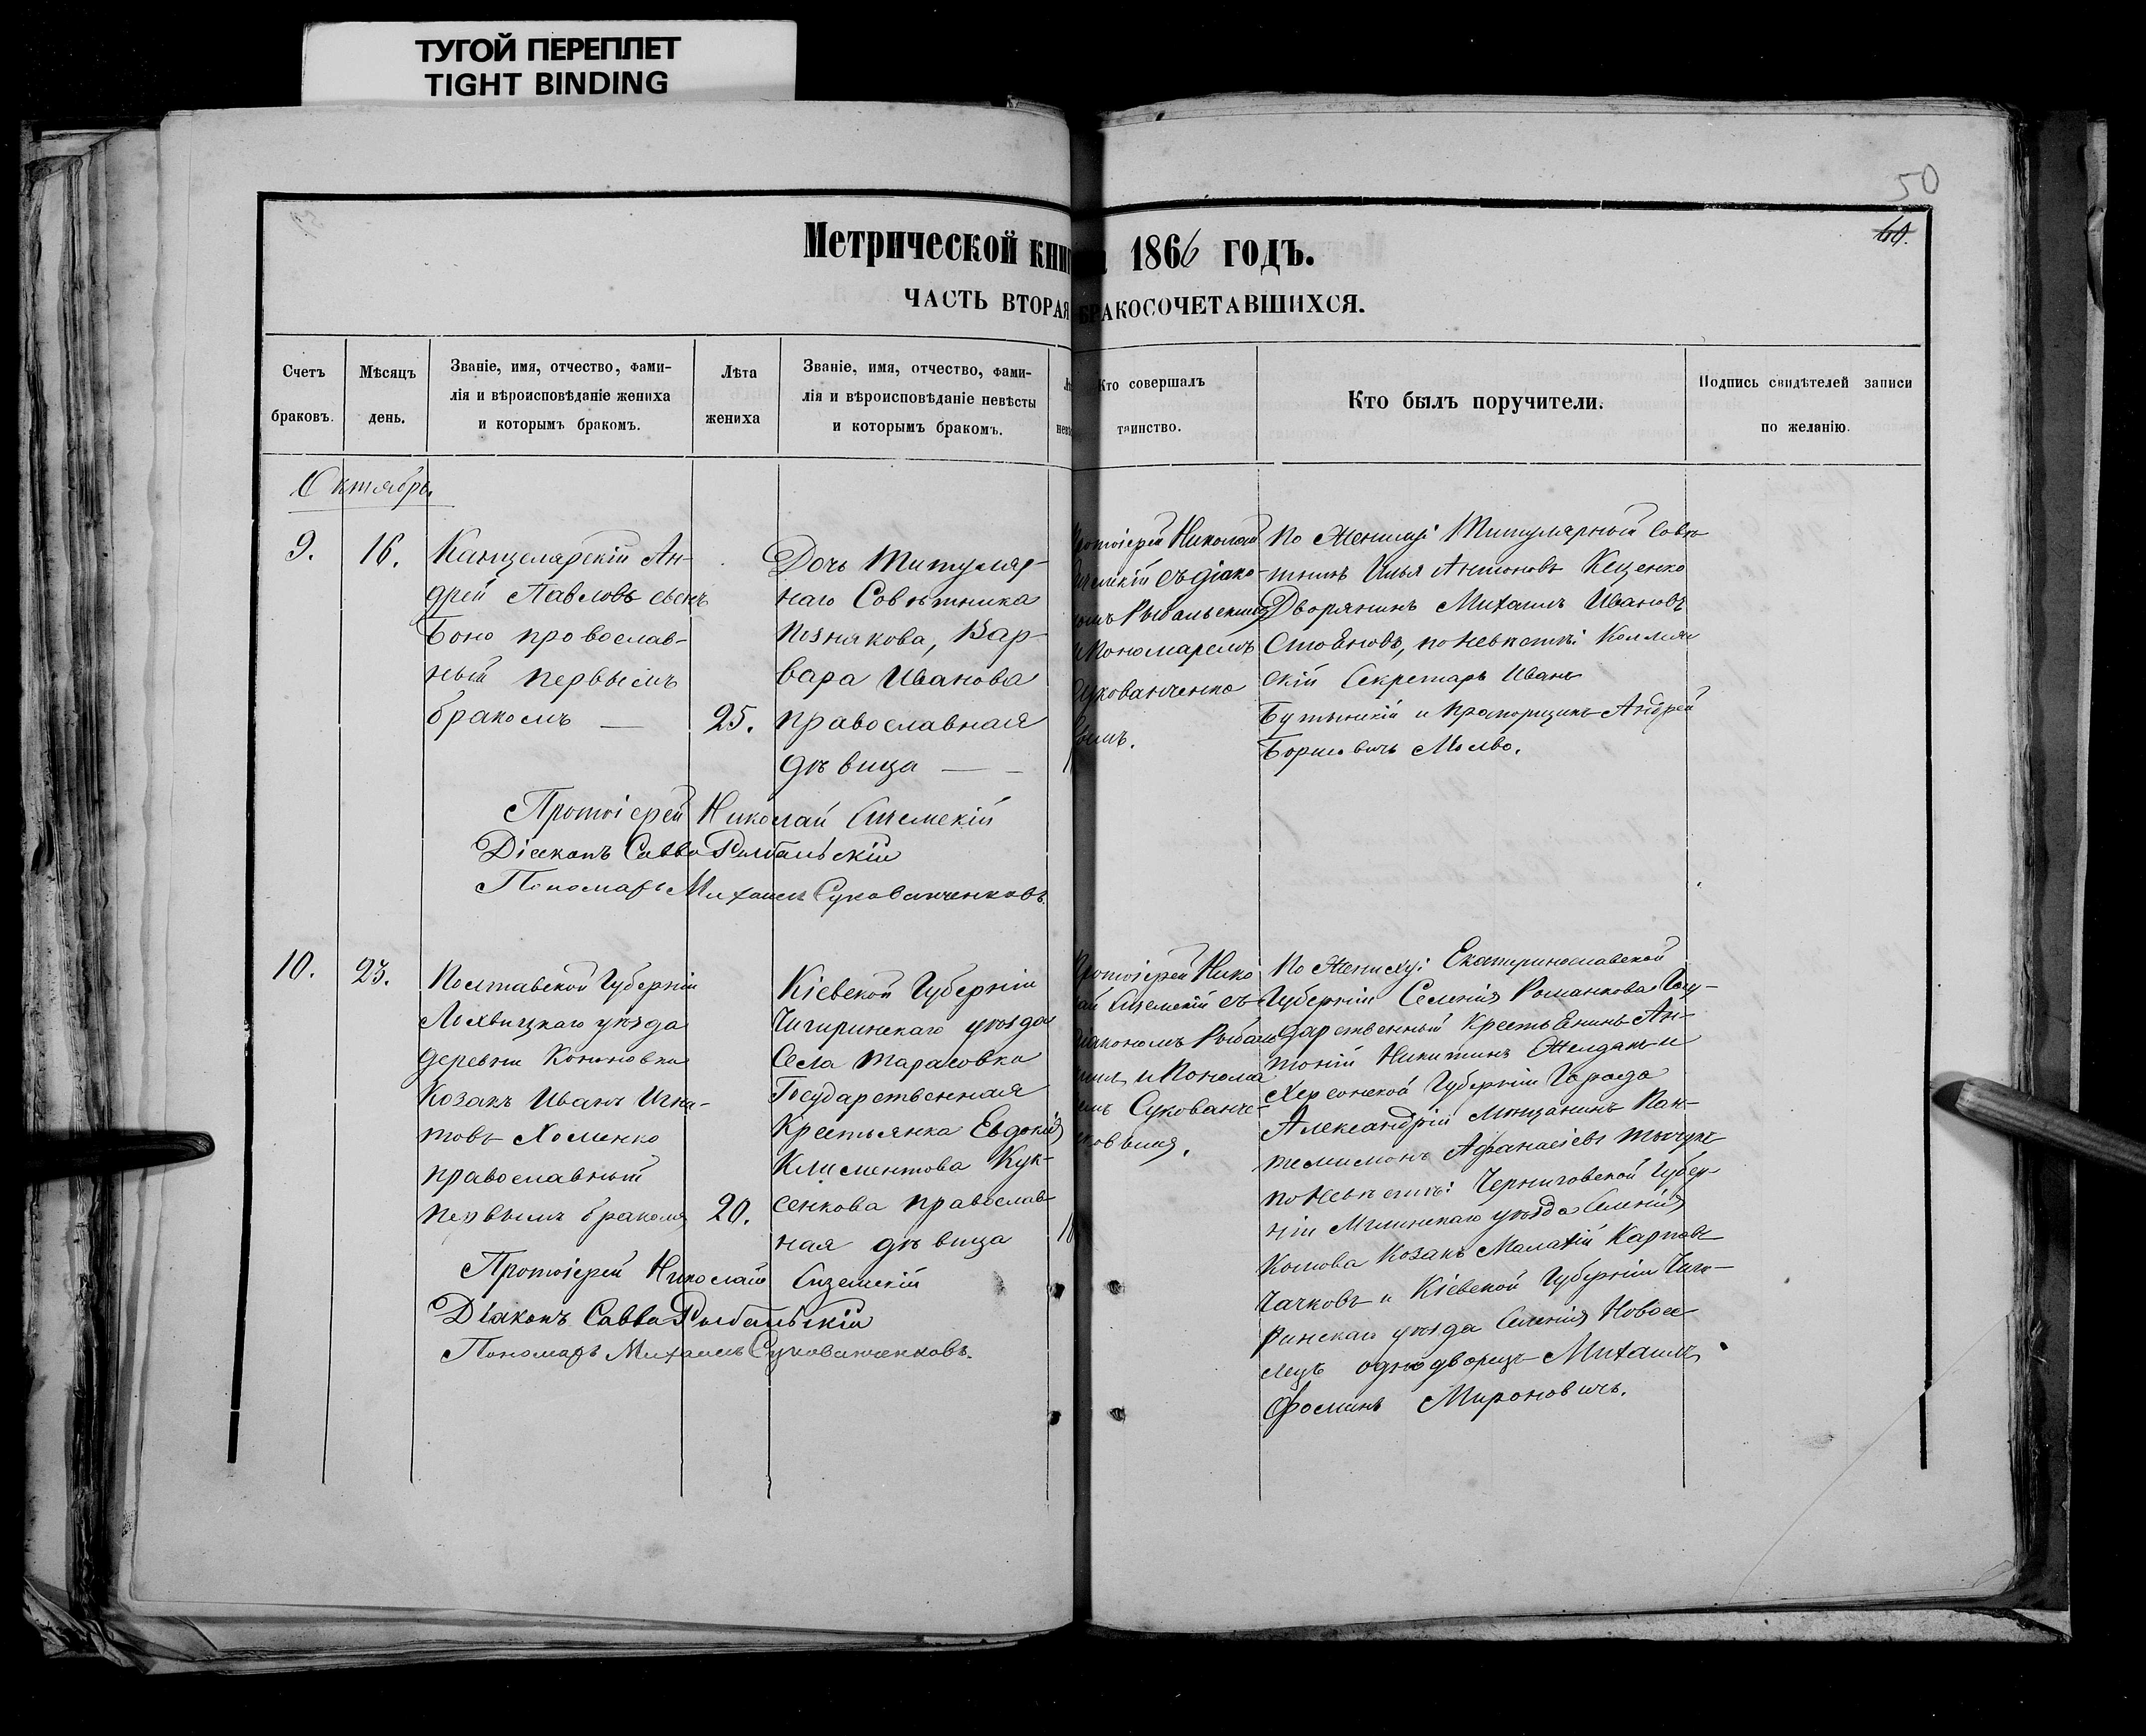 ТУГОЙ ПЕРЕПЛЕТ
TIGHT BINDING
50
60.
Метрической кни 1866 ГОДЪ.
ЧАСТЬ ВТОРАЯ БРАКОСОЧЕТАВШИХСЯ.
Счетъ браковъ.
Мѣсяцъ день.
Званіе, имя, отчество, фами-
лія и вѣроисповѣданіе жениха
и которымъ бракомъ.
Лѣта жениха
Званіе, имя, отчество, фами-
лія и вѣроисповѣданіе невѣсты
и которымъ бракомъ.
Кто совершалъ
таинство.
Кто былъ поручители.
Подпись свидѣтелей записи
по желанію.
Октябрь
9.
16.
Канцелярскій Ан-
дрей Павловъ
православ-
ный первымъ
бракомъ
25.
Дочь Титуляр-
наго Совѣтника
Познякова, Вар-
вара Иванова
православная
дѣвица
Николай
съ діако-
Рыбальскимъ
Пономаремъ
По Женихѣ Титулярный Совѣ-
тникъ Илья Антоновъ Кеценко
Дворянинъ Михаилъ Ивановъ
по невѣстѣ: Коллеж
скій Секретарь Иванъ
и Прапорщикъ Андрей
Борисовичъ Молво.
Протоіерей Николай
Діаконъ Савва Рыбальскій
Пономарь Михаилъ Сукованченковъ.
10.
23.
Полтавской Губерніи
Лохвицкаго уѣзда
деревни Кононовки
Козакъ Иванъ Игна-
товъ Хоменко
православный
первымъ бракомъ
20.
Кіевской Губерніи
Чигиринскаго уѣзда
Села Тарасовки
Государственная
Крестьянка Евдокія
Климентова Кук-
сенкова православ
ная дѣвица
Протоіерей Нико
съ
и Понома
Сукованче-
По Женихѣ: Екатеринославской
Губерніи Селенія Романкова Госу-
дарственный Крестьянинъ Ан-
тоній Никитинъ и
Херсонской Губерніи Города
Александріи Мѣщанинъ Пан-
телимонъ Афанасіевъ
по невѣстѣ: Черниговской Губер-
ніи Мглинскаго уѣзда Селенія
Козакъ Малахій Карповъ
Чачковъ и Кіевской Губерніи Чиги-
ринскаго уѣзда Селенія Новосе
лецъ однодворецъ Михаилъ
Фоминъ Мироновичъ.
Протоіерей Николай
Діаконъ Савва Рыбальскій
Пономарь Михаилъ Сукованченковъ.